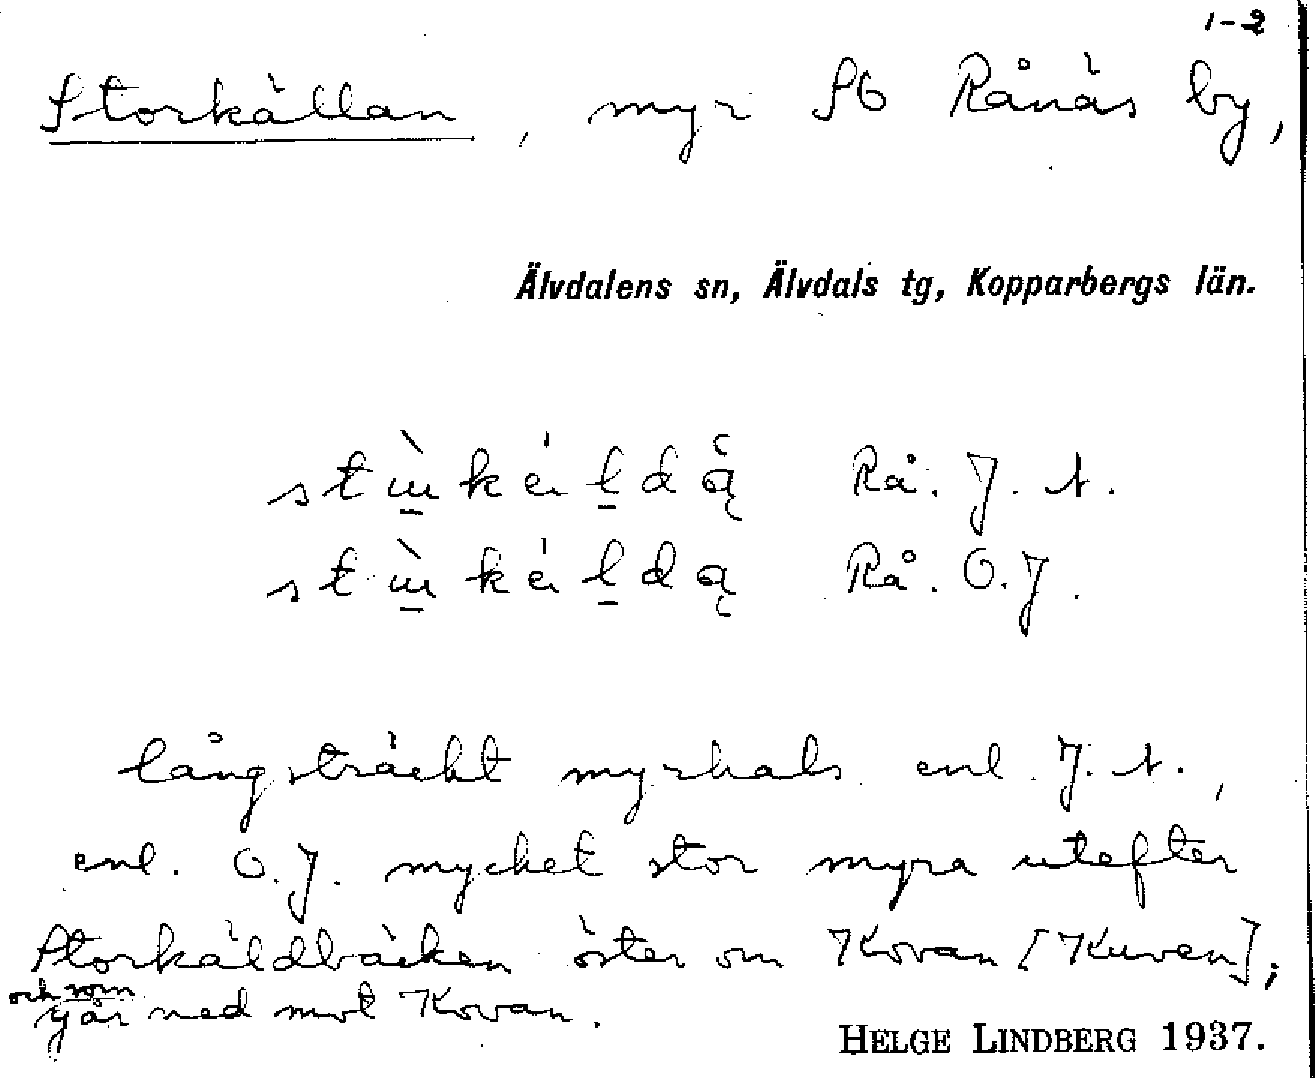 1-2
Storkällan, myr SO Rånäs by,
Älvdalens sn, Älvdals tg, Kopparbergs län.
Rå. J. A.
Rå. O. J.
långsträckt myrhals enl. J. A.,
enl. O. J. mycket stor myra utefter
Storkäldbäcken öster om Kovan [Kuven];
och som
går ned mot Kovan.
HELGE LINDBERG 1937.